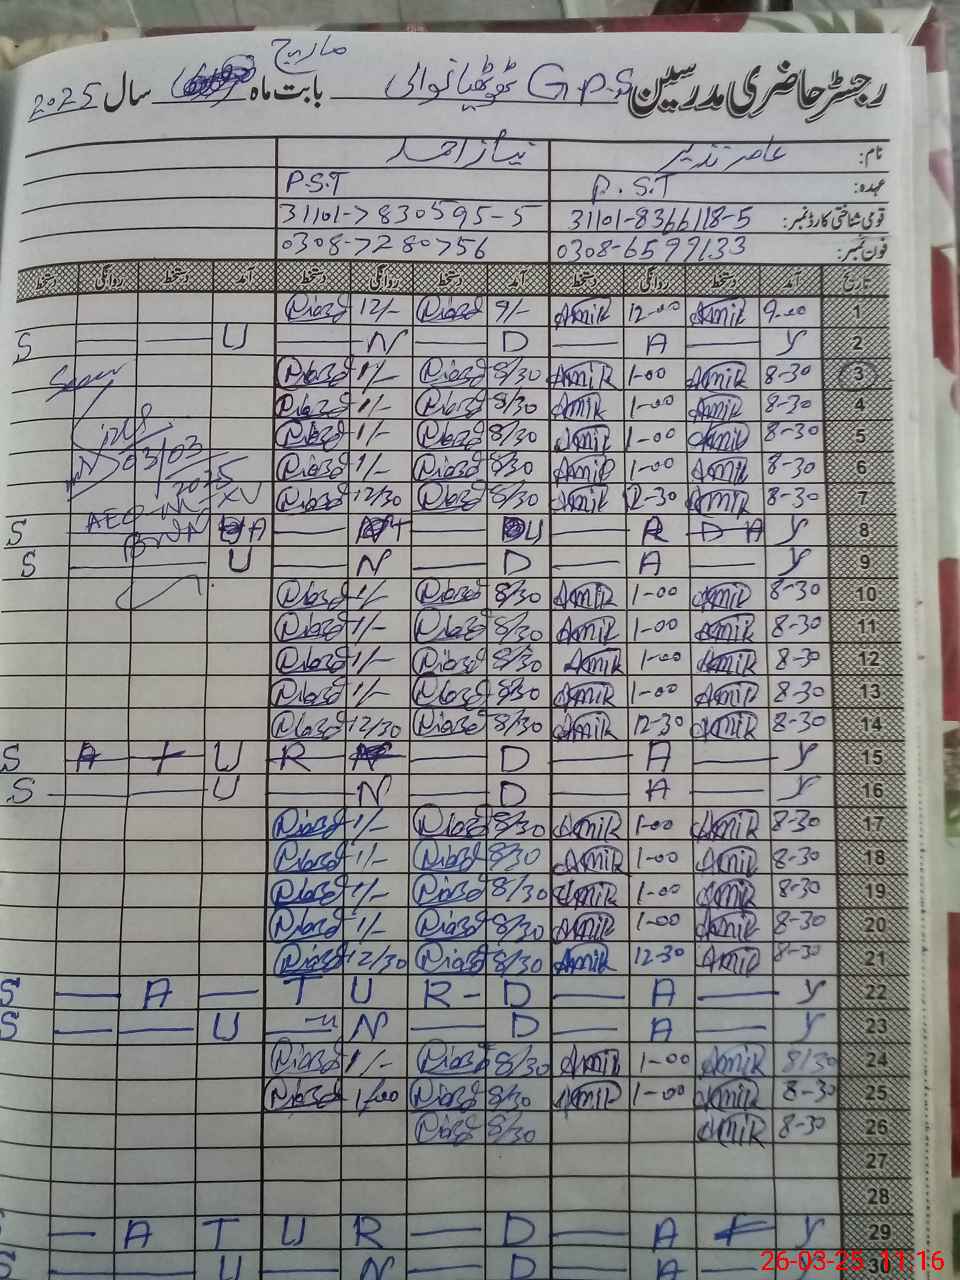 رجسٹر حاضری مدرسین G.P.S ٹھوٹھیانوالی بابت ماہ مارچ سال 2025
نام: عامر نذیر نیاز احمد
عہدہ: P.S.T P.S.T
قومی شناختی کارڈ نمبر: 31101-8366118-5 31101-7830595-5
فون نمبر: 0308-6599133 0308-7280756
تاریخ آمد دستخط روانگی دستخط آمد دستخط روانگی دستخط آمد دستخط روانگی دستخط
1 9-00 Amir 12-00 Amir 9/- Niaz 12/- Niaz
2 S U N D A Y
3 8-30 Amir 1-00 Amir 8/30 Niaz 1/- Niaz
4 8-30 Amir 1-00 Amir 8/30 Niaz 1/- Niaz
5 8-30 Amir 1-00 Amir 8/30 Niaz 1/- Niaz
03/03
6 8-30 Amir 1-00 Amir 8/30 Niaz 1/- Niaz
2025
7 8-30 Amir 12-30 Amir 8/30 Niaz 12/30 Niaz
AEO
8 S A U R D A Y
9 S U N D A Y
10 8-30 Amir 1-00 Amir 8/30 Niaz 1/- Niaz
11 8-30 Amir 1-00 Amir 8/30 Niaz 1/- Niaz
12 8-30 Amir 1-00 Amir 8/30 Niaz 1/- Niaz
13 8-30 Amir 1-00 Amir 8/30 Niaz 1/- Niaz
14 8-30 Amir 12-30 Amir 8/30 Niaz 12/30 Niaz
15 S A T U R D A Y
16 S U N D A Y
17 8-30 Amir 1-00 Amir 8/30 Niaz 1/- Niaz
18 8-30 Amir 1-00 Amir 8/30 Niaz 1/- Niaz
19 8-30 Amir 1-00 Amir 8/30 Niaz 1/- Niaz
20 8-30 Amir 1-00 Amir 8/30 Niaz 1/- Niaz
21 8-30 Amir 12-30 Amir 8/30 Niaz 12/30 Niaz
22 S A T U R D A Y
23 S U N D A Y
24 8/30 Amir 1-00 Amir 8/30 Niaz 1/- Niaz
25 8-30 Amir 1-00 Amir 8/30 Niaz 1/00 Niaz
26 8-30 Amir 8/30 Niaz
27
28
29 A T U R D A Y
30 S U N D A
26-03-25 11:16